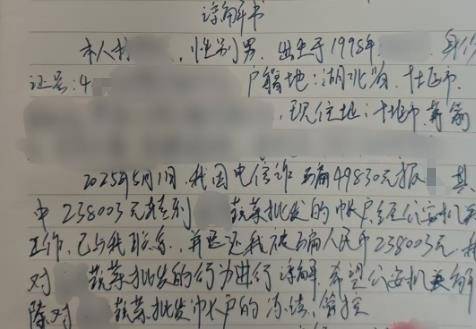 谅解书
本人 ，性别男，出生于1998年 身份
证号：4 户籍地：湖北省十堰市
，现住地：十堰市
2025年5月1日，我因电信诈骗49830元报 其
中23800元转到 蔬菜批发的账户，经公安机关
工作，已与我联系，并退还我被骗人民币23800元，我
对 蔬菜批发的行为进行谅解，希望公安机关解
除对 蔬菜批发账户的冻结，管控